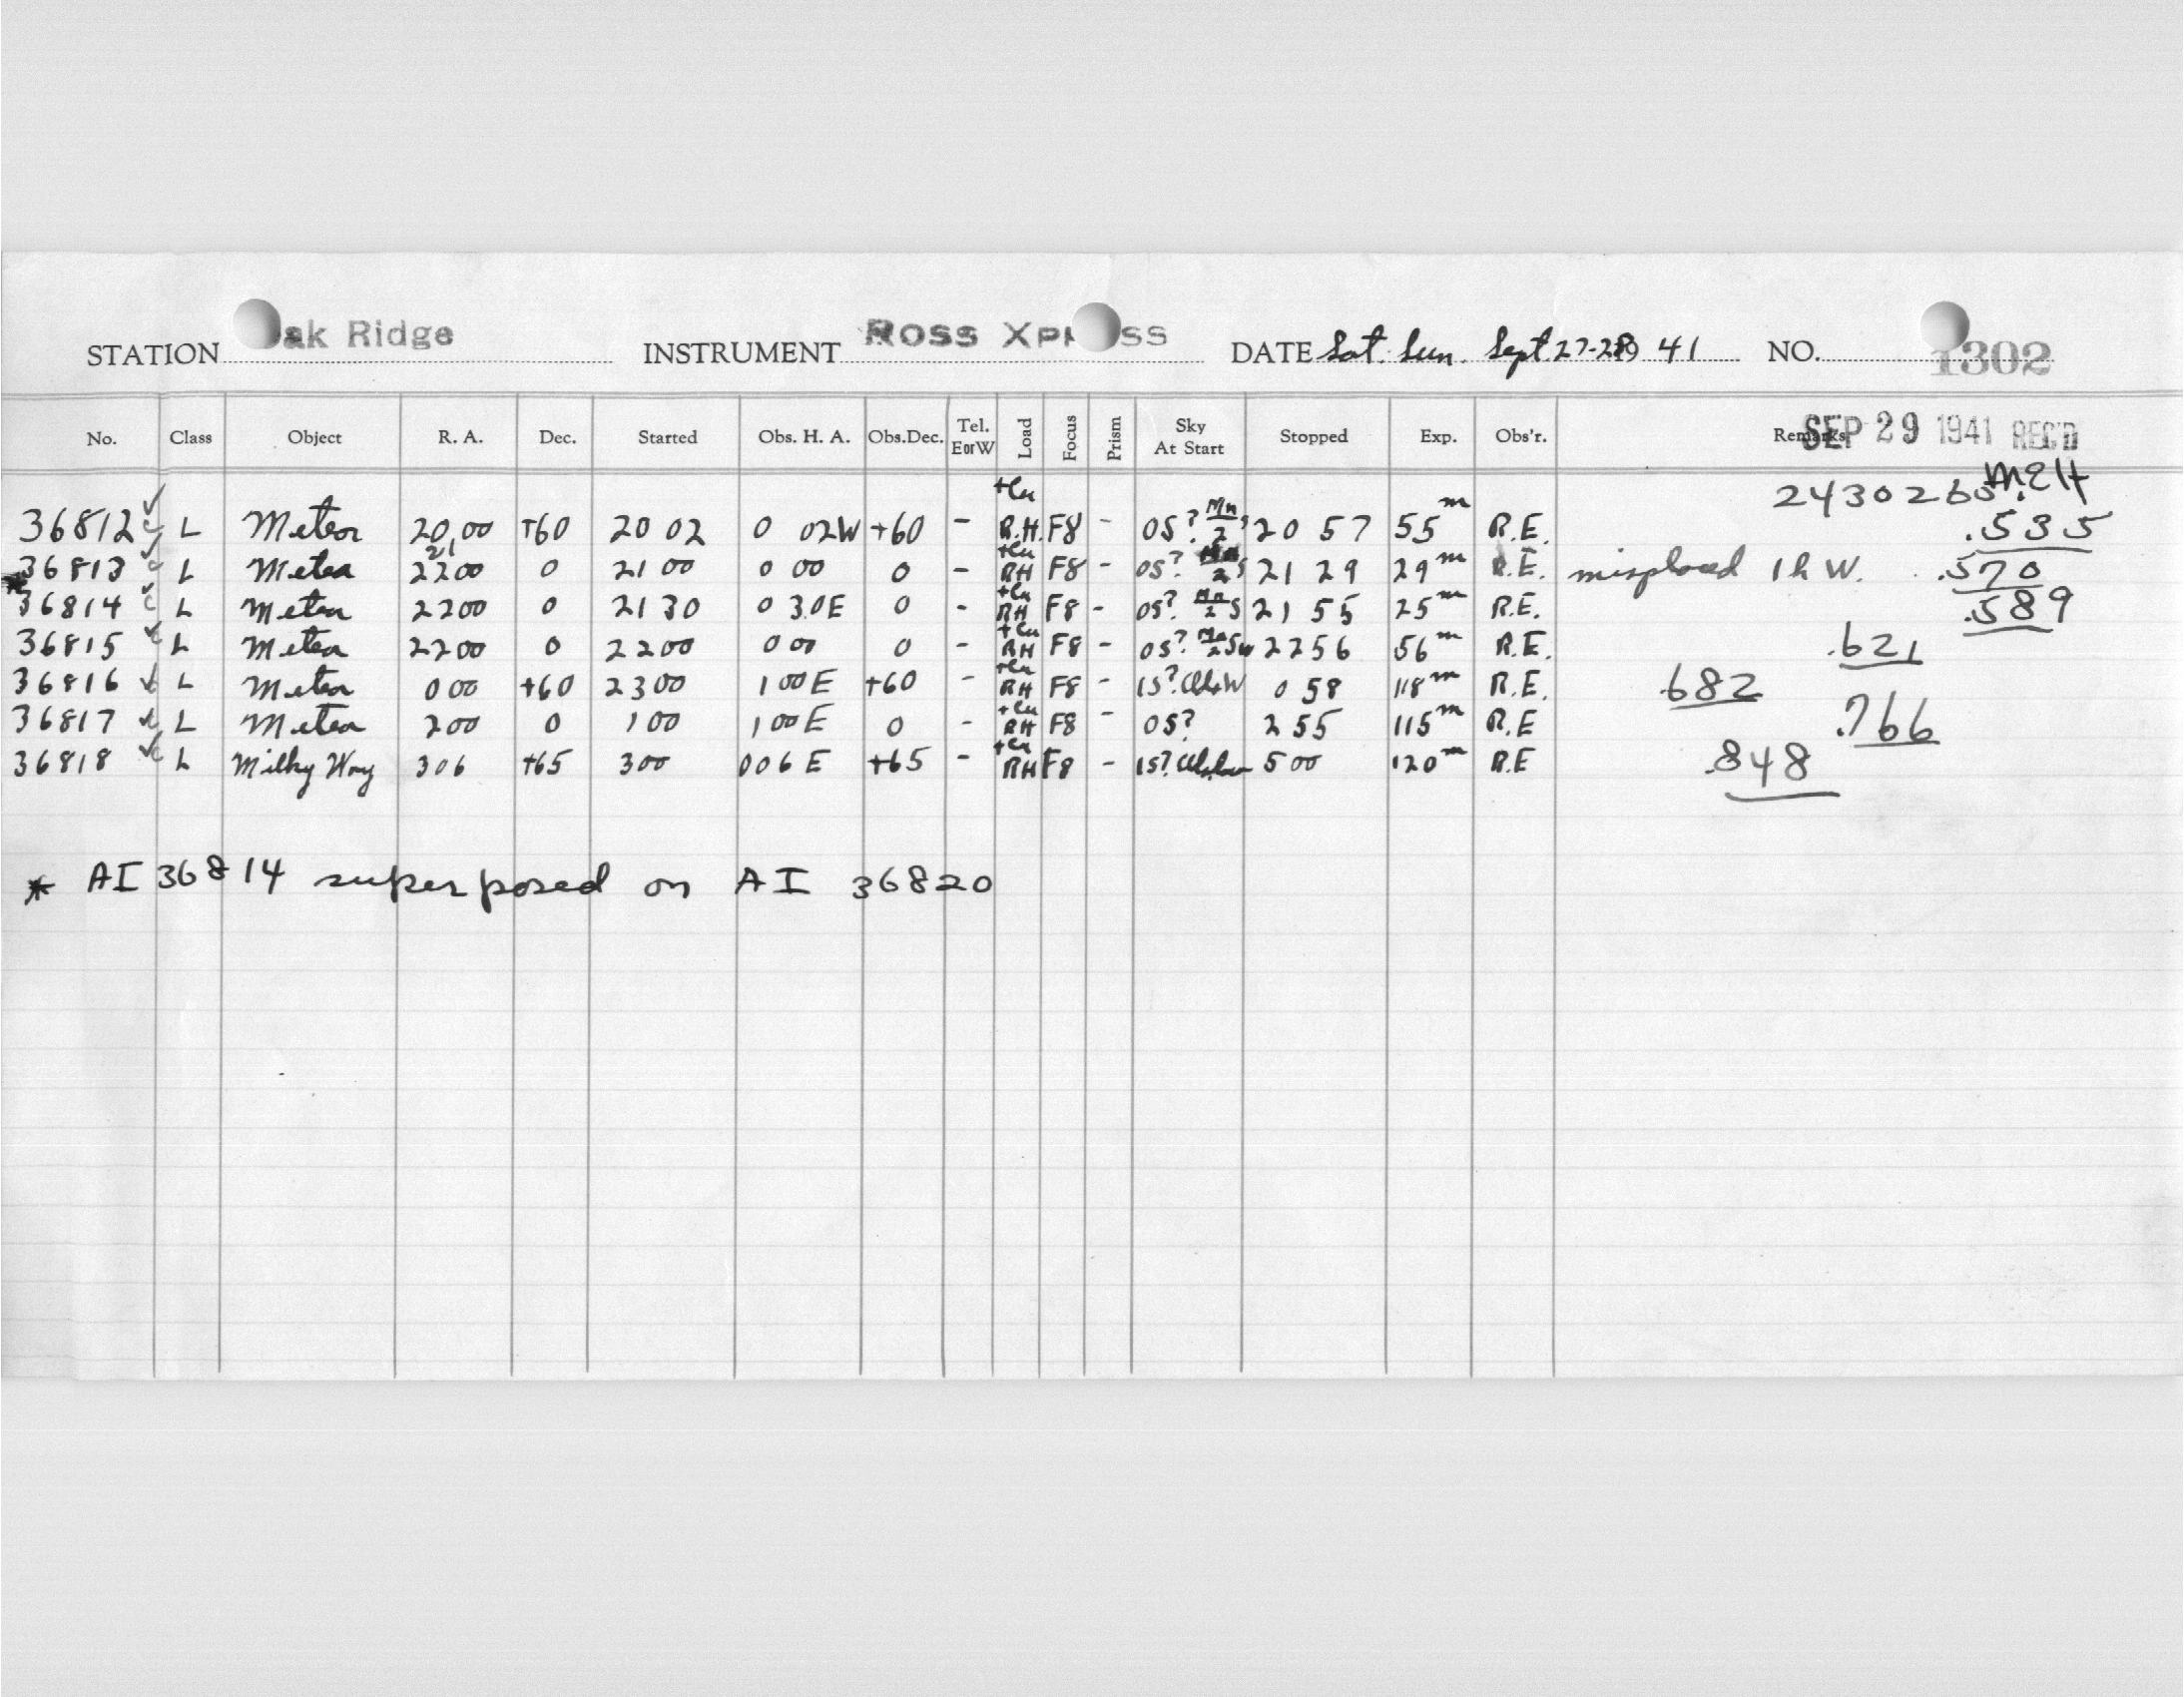 STATION Oak Ridge INSTRUMENT Ross Xpress DATE Sat. Sun. Sept 27-28 1941 NO. 1302
No. Class Object R. A. Dec. Started Obs. H. A. Obs.Dec. Tel. E or W Load Focus Prism Sky At Start Stopped Exp. Obs'r. Remarks
SEP 29 1941 REC'D
melt
2430265.
36812 L Meteor 20 00 +60 20 02 0 02W +60 - R.H. F8 - 0S? 20 57 55m R.E. .535
21
36813 L Meteor 2200 0 21 00 0 00 0 - RH F8 - 0S? 21 29 29m R.E. misplaced 1h W. .570
* 36814 L Meteor 2200 0 21 30 0 30E 0 - RH F8 - 0S? Mn/2 S 21 55 25m R.E. .589
36815 L Meteor 2200 0 2200 0 00 0 - RH F8 - 0S? 2256 56m R.E. .621
36816 L Meteor 0 00 +60 2300 1 00E +60 - RH F8 - 1S? 0 58 118m R.E. .682
36817 L Meteor 200 0 100 1 00E 0 - RH F8 - 0S? 2 55 115m R.E .766
36818 L Milky Way 306 +65 300 006E +65 - RH F8 - 1S? 500 120m R.E .848
* AI 36814 superposed on AI 36820